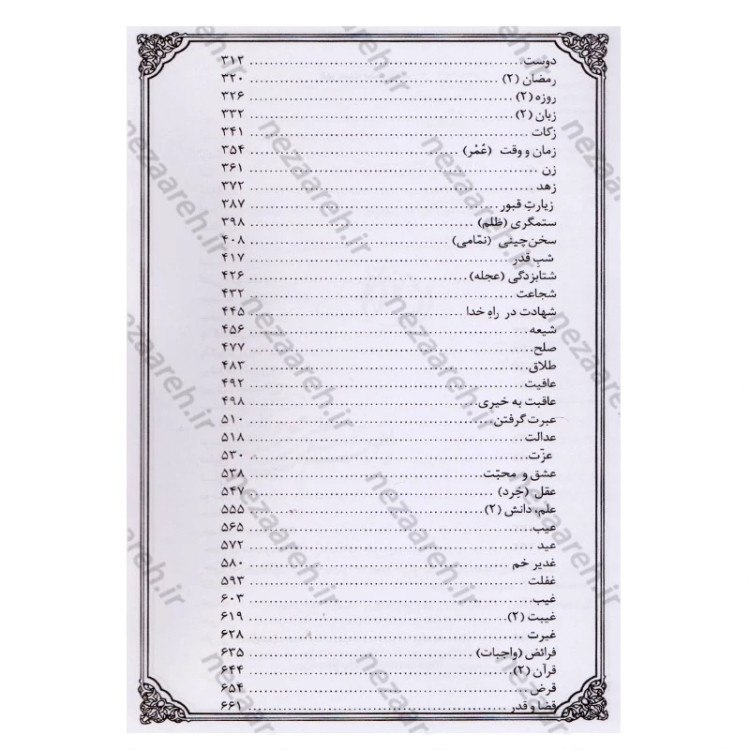 دوست ۳۱۲
رمضان (۲) ۳۲۰
روزه (۲) ۳۲۶
زبان (۲) ۳۳۲
زکات ۳۴۱
زمان و وقت (عُمْر) ۳۵۴
زن ۳۶۱
زهد ۳۷۲
زیارتِ قبور ۳۸۷
ستمگری (ظلم) ۳۹۸
سخن‌چینی (نمّامی) ۴۰۸
شبِ قَدر ۴۱۷
شتابزدگی (عجله) ۴۲۶
شجاعت ۴۳۲
شهادت در راهِ خدا ۴۴۵
شیعه ۴۵۶
صلح ۴۷۷
طلاق ۴۸۳
عافیت ۴۹۲
عاقبت به خیری ۴۹۸
عبرت گرفتن ۵۱۰
عدالت ۵۱۸
عزّت ۵۳۰
عشق و محبّت ۵۳۸
عقل (خِرد) ۵۴۷
علم، دانش (۲) ۵۵۵
عیب ۵۶۵
عید ۵۷۲
غدیر خم ۵۸۰
غفلت ۵۹۳
غیب ۶۰۳
غیبت (۲) ۶۱۹
غیرت ۶۲۸
فرائض (واجبات) ۶۳۵
قرآن (۲) ۶۴۴
قرض ۶۵۴
قضا و قدر ۶۶۱
nezaareh.ir